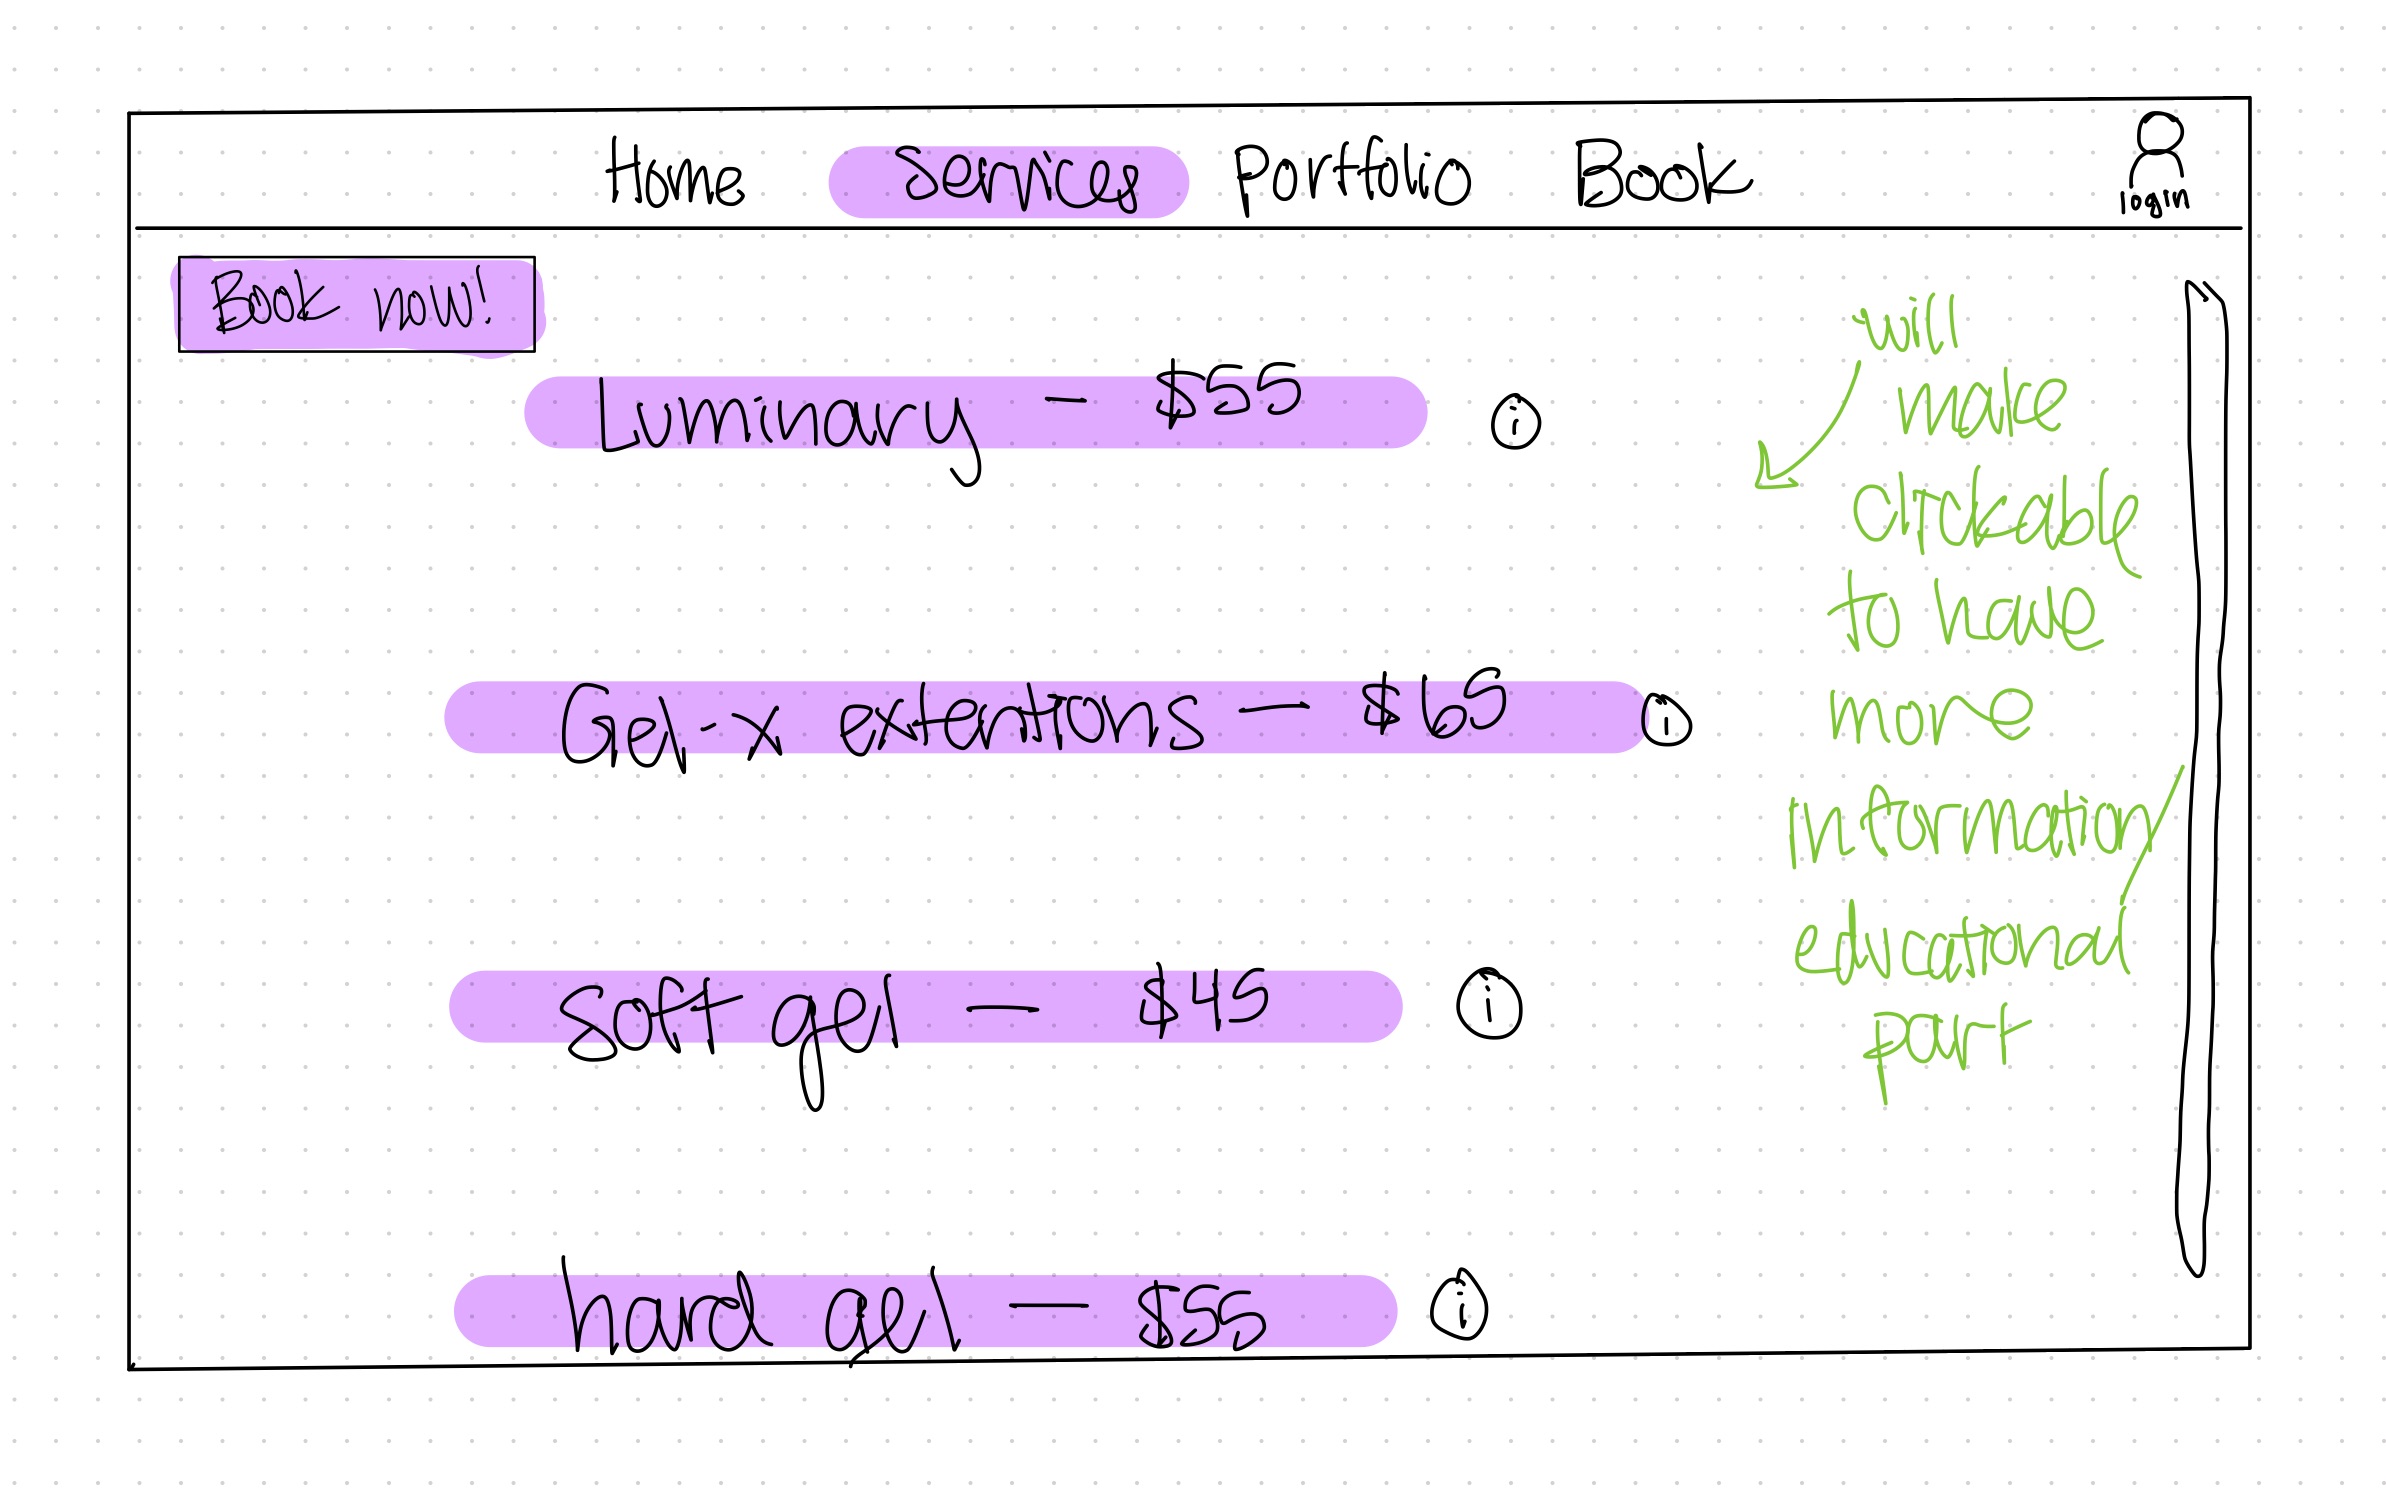 Home Services Portfolio Book
login
Book now!
Luminary — $55 i
Gel-x extentions — $65 i
soft gel — $45 i
hard gel — $55 i
will
make
clickable
to have
more
information/
educational
part